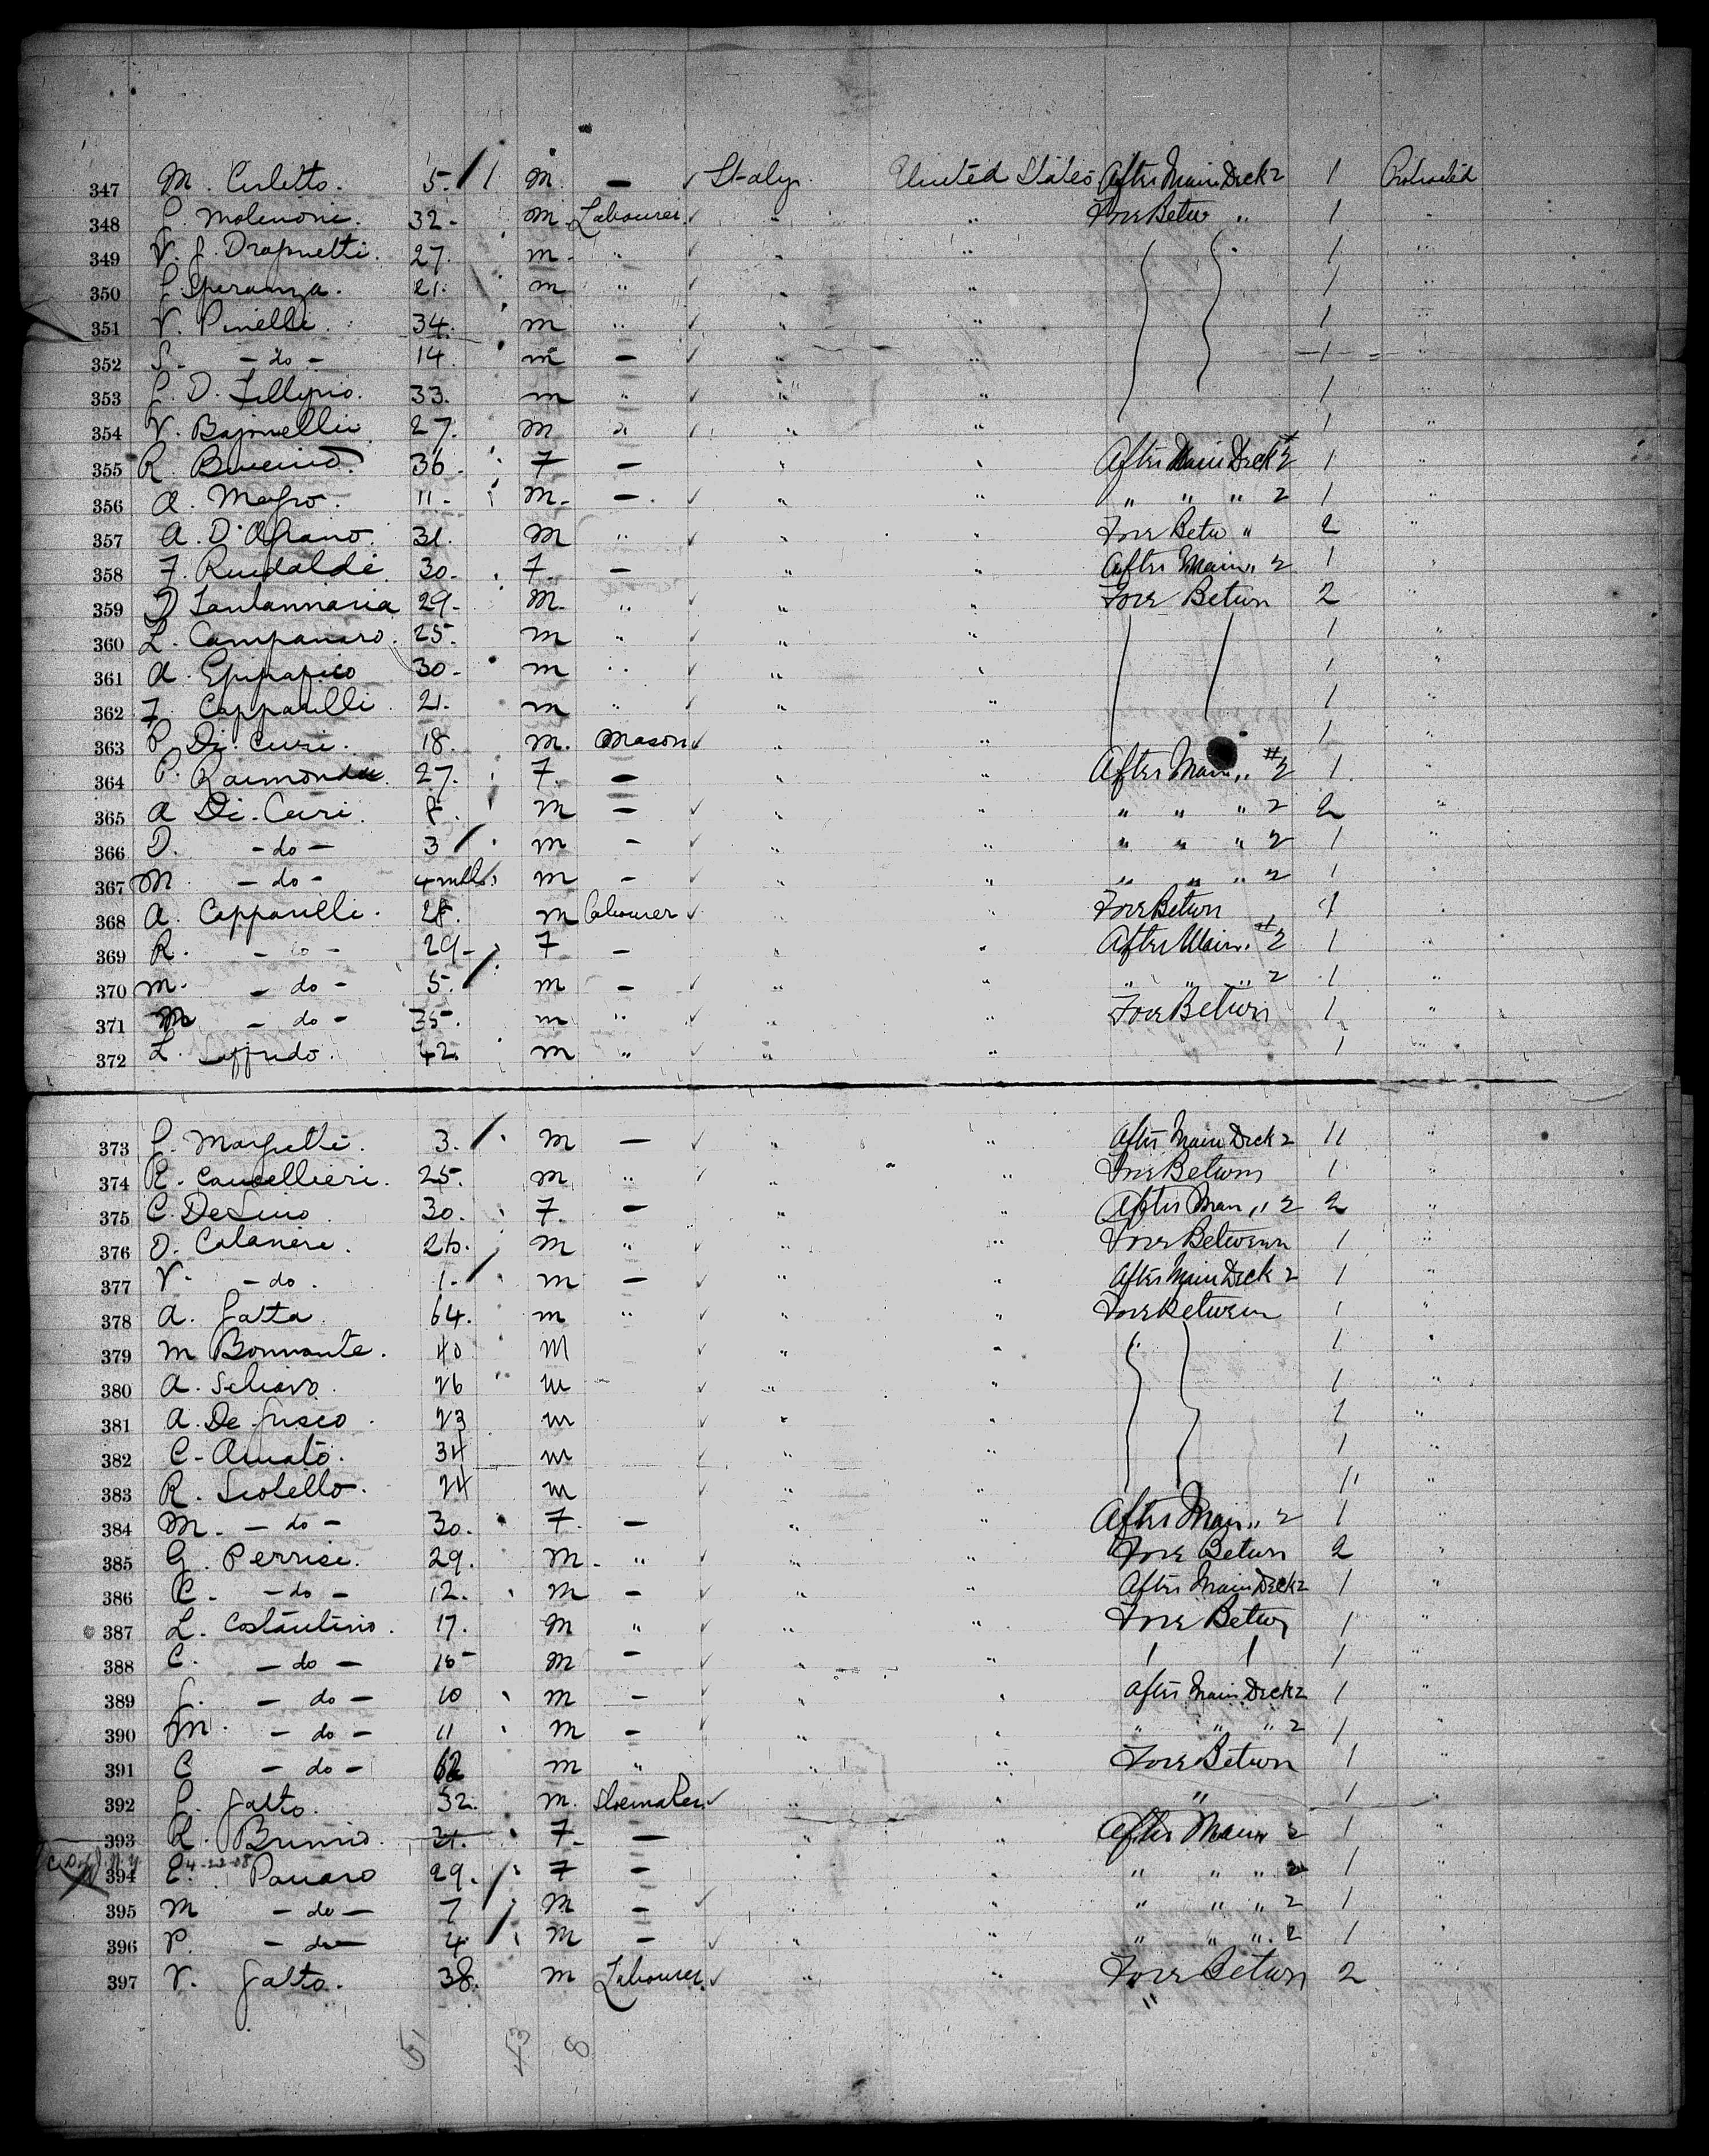 347 M. Curletto. 5. 1 m. — ✓ Italy. United States After Main Deck 2 1 Protracted
348 Molinoni. 32- m. Labourer ✓ " " Fore Betw " 1 "
349 V. G. 27. m- " ✓ " " 1 "
350 G. Speranza. 21. m " ✓ " " 1 "
351 V. Pinelli. 34. m " ✓ " " 1 "
352 S. - do - 14. m — ✓ " " 1 "
353 G. D. Fillipio. 33. m " ✓ " " 1 "
354 V. 27. m " ✓ " " 1 "
355 R. 36. 7 — " " After Main Deck #2 1 "
356 a. Magro. 11- m- — ✓ " " " " " 2 1 "
357 a. D'Agano. 31. m " ✓ " " Fore Betw " 2 "
358 7. Rudaldi. 30- 7. — " " After Main " 2 1 "
359 D Santannaria 29- m. " ✓ " " Fore Betwn 2 "
360 L. Campanaro. 25. m " ✓ " " 1 "
361 a. Epifanico 30- m " ✓ " " 1 "
362 7. Capparelli 21. m " ✓ " " 1 "
363 P. Di-Curi. 18. m. Mason ✓ " " 1 "
364 P. Raimonda. 27. 7. — " " After Main " #2 1. "
365 a Di-Curi. 8. m — ✓ " " " " " 2 2 "
366 D. - do - 3 m - ✓ " " " " " 2 1 "
367 M - do - 4 mths m - ✓ " " " " " 2 1 "
368 a. Capparelli. 28. m Labourer ✓ " " Fore Betwn 1 "
369 R. - do - 29- 7 — " " After Main " #2 1 "
370 m. - do - 5. m — ✓ " " " " " 2 1 "
371 M - do - 35. m " ✓ " " Fore Betwn 1 "
372 L. Loffredo. 42. m " ✓ " " 1 "
373 G. Margutti. 3. m — ✓ " " After Main Deck 2 11 "
374 R. Cancellieri. 25. m " ✓ " " Fore Betwn 1 "
375 C. DeLuio 30. 7. — " " After Main " 2 2 "
376 D. Calaneri. 26. m " ✓ " " Fore Between 1 "
377 V. - do. 1- m — ✓ " " After Main Deck 2 1 "
378 a. Gatta. 64. m " ✓ " " Fore Between 1 "
379 m Bonnante. 40 m ✓ " " 1 "
380 a. Schiavo. 26 m ✓ " " 1 "
381 a. De Fusco. 23 m ✓ " " 1 "
382 C- Amato. 34 m ✓ " " 1 "
383 R. Scolello. 24 m ✓ " " 1 "
384 M. - do - 30. 7. — " " After Main " 2 1 "
385 G. Perrise. 29. m- " ✓ " " Fore Betwn 2 "
386 C. - do - 12. m — ✓ " " After Main Deck 2 1 "
387 L. Costantino. 17. m " ✓ " " Fore Betwn 1 "
388 C. - do - 15 m — ✓ " " 1 "
389 G. - do - 10 m — ✓ " " After Main Deck 2 1 "
390 m. - do - 11 m — ✓ " " " " " 2 1 "
391 C - do - 62 m " " " Fore Betwn 1 "
392 G. Galto. 32. m. Shoemaker ✓ " " " 1 "
393 R. Brunio. 21. 7. — " " After Main " 2 1 "
394 E. 4-22-08 Panaro 29. 7 — " " " " " 2 1 "
395 m - do - 7 m — ✓ " " " " " 2 1 "
396 P. - do - 4 m — ✓ " " " " " 2 1 "
397 V. Galto. 38. m Labourer. ✓ " " Fore Betwn 2 "
51 43 8